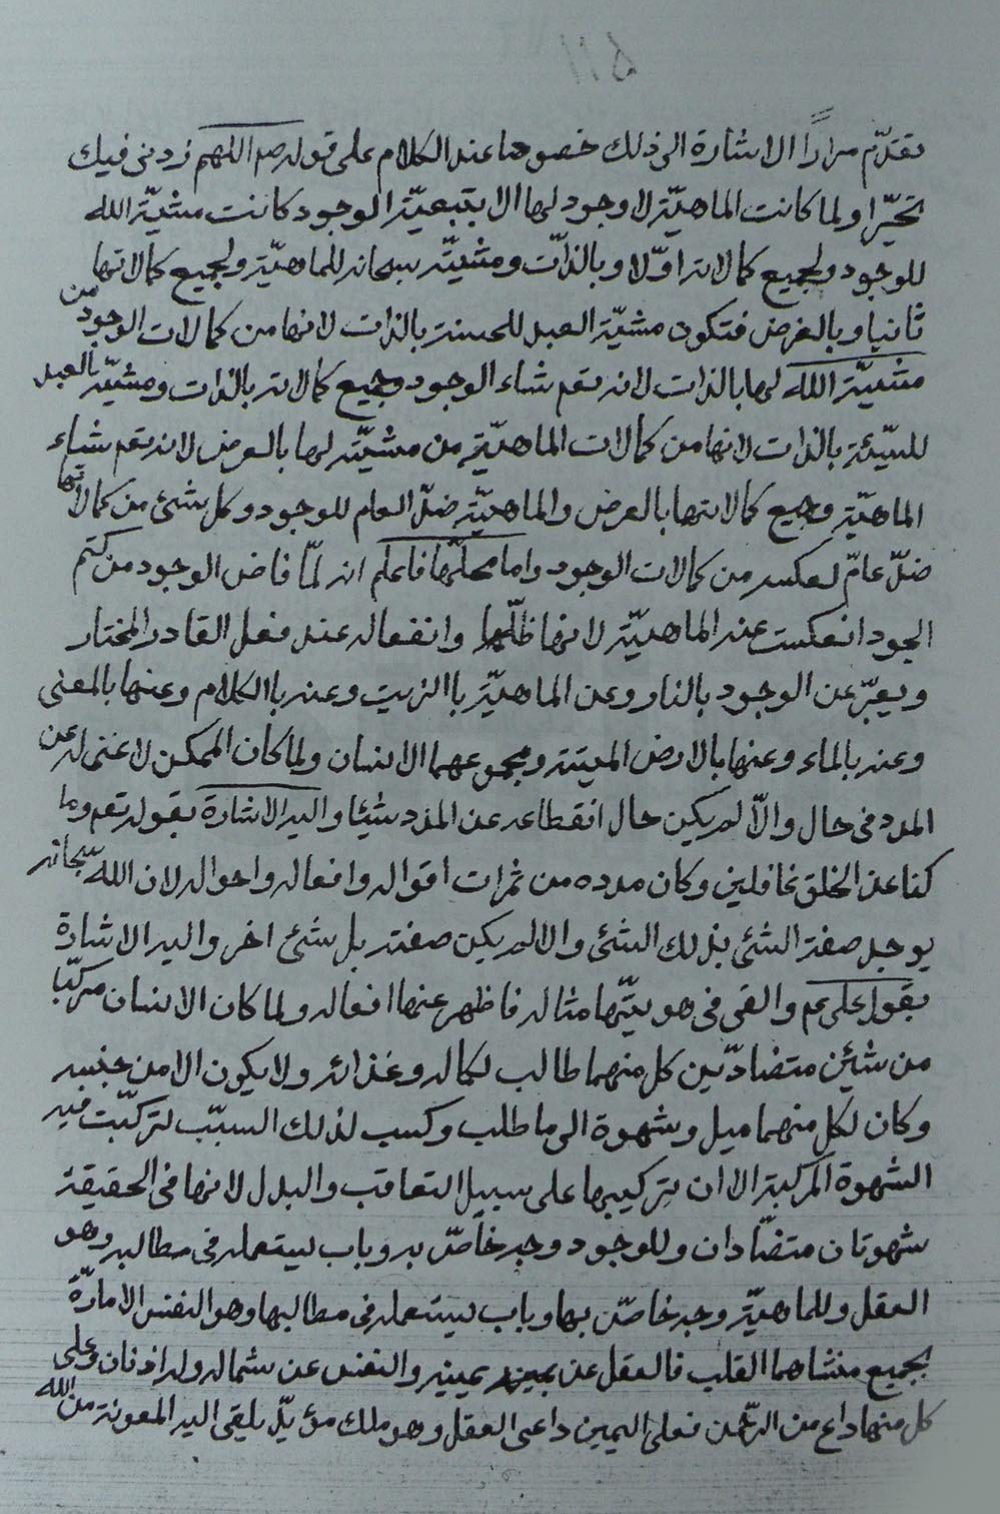 ۵۱۱
تقدّم مرارًا الاشارة الى ذلك خصوصا عند الكلام على قوله صم اللهم زدنى فيك
تحيّرا ولما كانت الماهيّة لا وجود لها الا بتبعيّة الوجود كانت مشيّة الله
للوجود ولجميع كمالاته اوّلا وبالذّات ومشيّته سبحانه للماهيّة ولجميع كمالاتها
ثانيا وبالعرض فتكون مشيّة العبد للحسنة بالذات لانها من كمالات الوجود من
مشيّة الله لها بالذات لانه تعم شاء الوجود وجميع كمالاته بالذات ومشيّة العبد
للسيّئة بالذات لانها من كمالات الماهيّة من مشيّته لها بالعرض لانه تعم شاء
الماهيّة وجميع كمالاتها بالعرض والماهيّة ضدّ العام للوجود وكل شئ من كمالاتها
ضدّ عامّ لعكسه من كمالات الوجود واما محلّها فاعلم انه لمّا فاض الوجود من كتم
الجود انعكست عنه الماهيّة لانها ظلّها وانفعاله عند فعل القادر المختار
ويعبّر عن الوجود بالنار وعن الماهيّة باالزيت وعنه باالكلام وعنها بالمعنى
وعنه بالماء وعنها بالارض الميتة ومجموعهما الانسان ولما كان الممكن لا غنى له عن
المدد فى حال والّا لم يكن حال انقطاعه عن المدد شيئا واليه الاشارة بقوله تعم وما
كنا عن الخلق غافلين وكان مدده من ثمرات اقواله وافعاله واحواله لان الله سبحانه
يوجد صفة الشئ بذلك الشئ والا لم يكن صفته بل شئ اخر واليه الاشارة
بقول على عم والقى فى هويّتها مثاله فاظهر عنها افعاله ولما كان الانسان مركّبا
من شيئن متضادّين كل منهما طالب لكماله وغذائه ولا يكون الا من جنسه
وكان لكل منهما ميل وشهوة الى ما طلب وكسب لذلك السبّب لتركّبت فيه
الشهوة المركبة الا ان تركيبها على سبيل التعاقب والبدل لانها فى الحقيقة
شهوتان متضّادان وللوجود وجه خاصّ به وباب يستعمله فى مطالبه وهو
العقل وللماهيّة وجه خاصّ بها وباب يستعمله فى مطالبها وهو النفس الامارّة
بجميع منشاهما القلب فالعقل عن يمينه والنفس عن شماله وله اذنان وعلى
كل منها داع من الرحمن فعلى اليمين داعى العقل وهو ملك مؤيّد يلقى اليه المعونة من الله